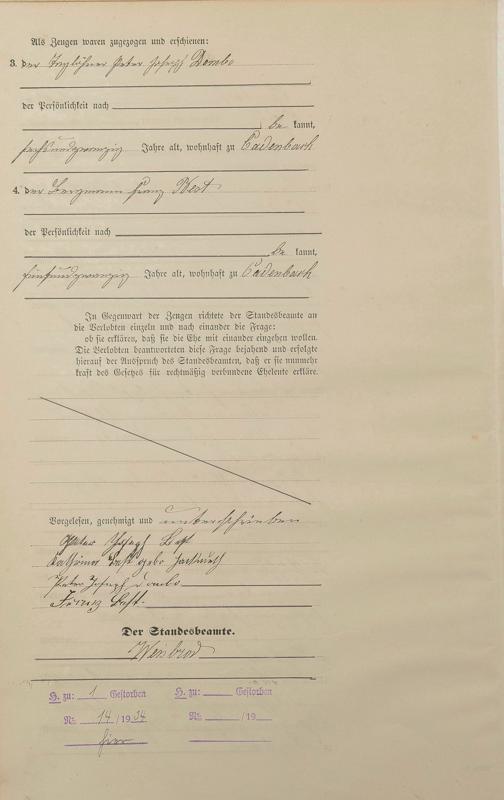 Als Zeugen waren zugezogen und erschienen:
3. der Taglöhner Peter Joseph Dombo
der Persönlichkeit nach
be kannt,
sechsundzwanzig Jahre alt, wohnhaft zu Cadenbach
4. der Bergmann Franz Best
der Persönlichkeit nach
be kannt,
fünfundzwanzig Jahre alt, wohnhaft zu Cadenbach
In Gegenwart der Zeugen richtete der Standesbeamte an
die Verlobten einzeln und nach einander die Frage:
ob sie erklären, daß sie die Ehe mit einander eingehen wollen.
Die Verlobten beantworteten diese Frage bejahend und erfolgte
hierauf der Ausspruch des Standesbeamten, daß er sie nunmehr
kraft des Gesetzes für rechtmäßig verbundene Eheleute erkläre.
Vorgelesen, genehmigt und unterschrieben
Peter Joseph Best
Best geb.
Peter Joseph Dombo
Franz Best.
Der Standesbeamte.
Weisbrod
H. zu: 1 Gestorben H. zu: Gestorben
№ 14 / 1934 № / 19
hier